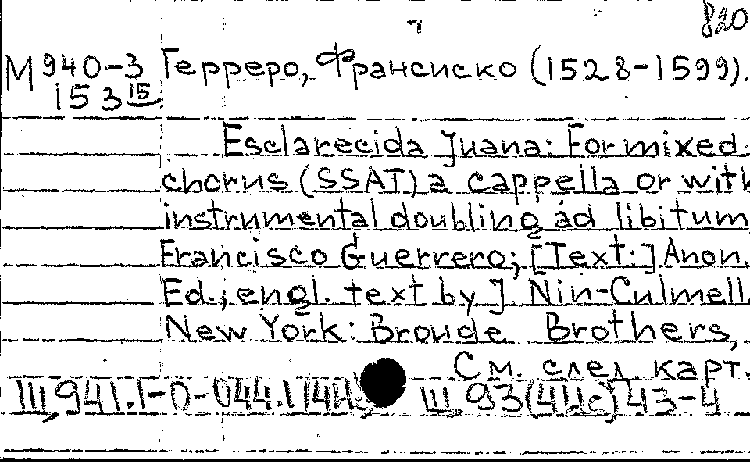 820
М 940-3 Герреро, Франсиско (1528-1599).
153 15
Esclarecida Juana: For mixed
chorus (SSAT) a cappella or with
instrumental doubling ad libitum
Francisco Guerrero; [Text:] Anon.
Ed.; engl. text by J. Nin-Culmell.
New York: Broude Brothers,
См. след карт.
Щ 941.1-0-044.1 Щ 93(4Ис)43-4